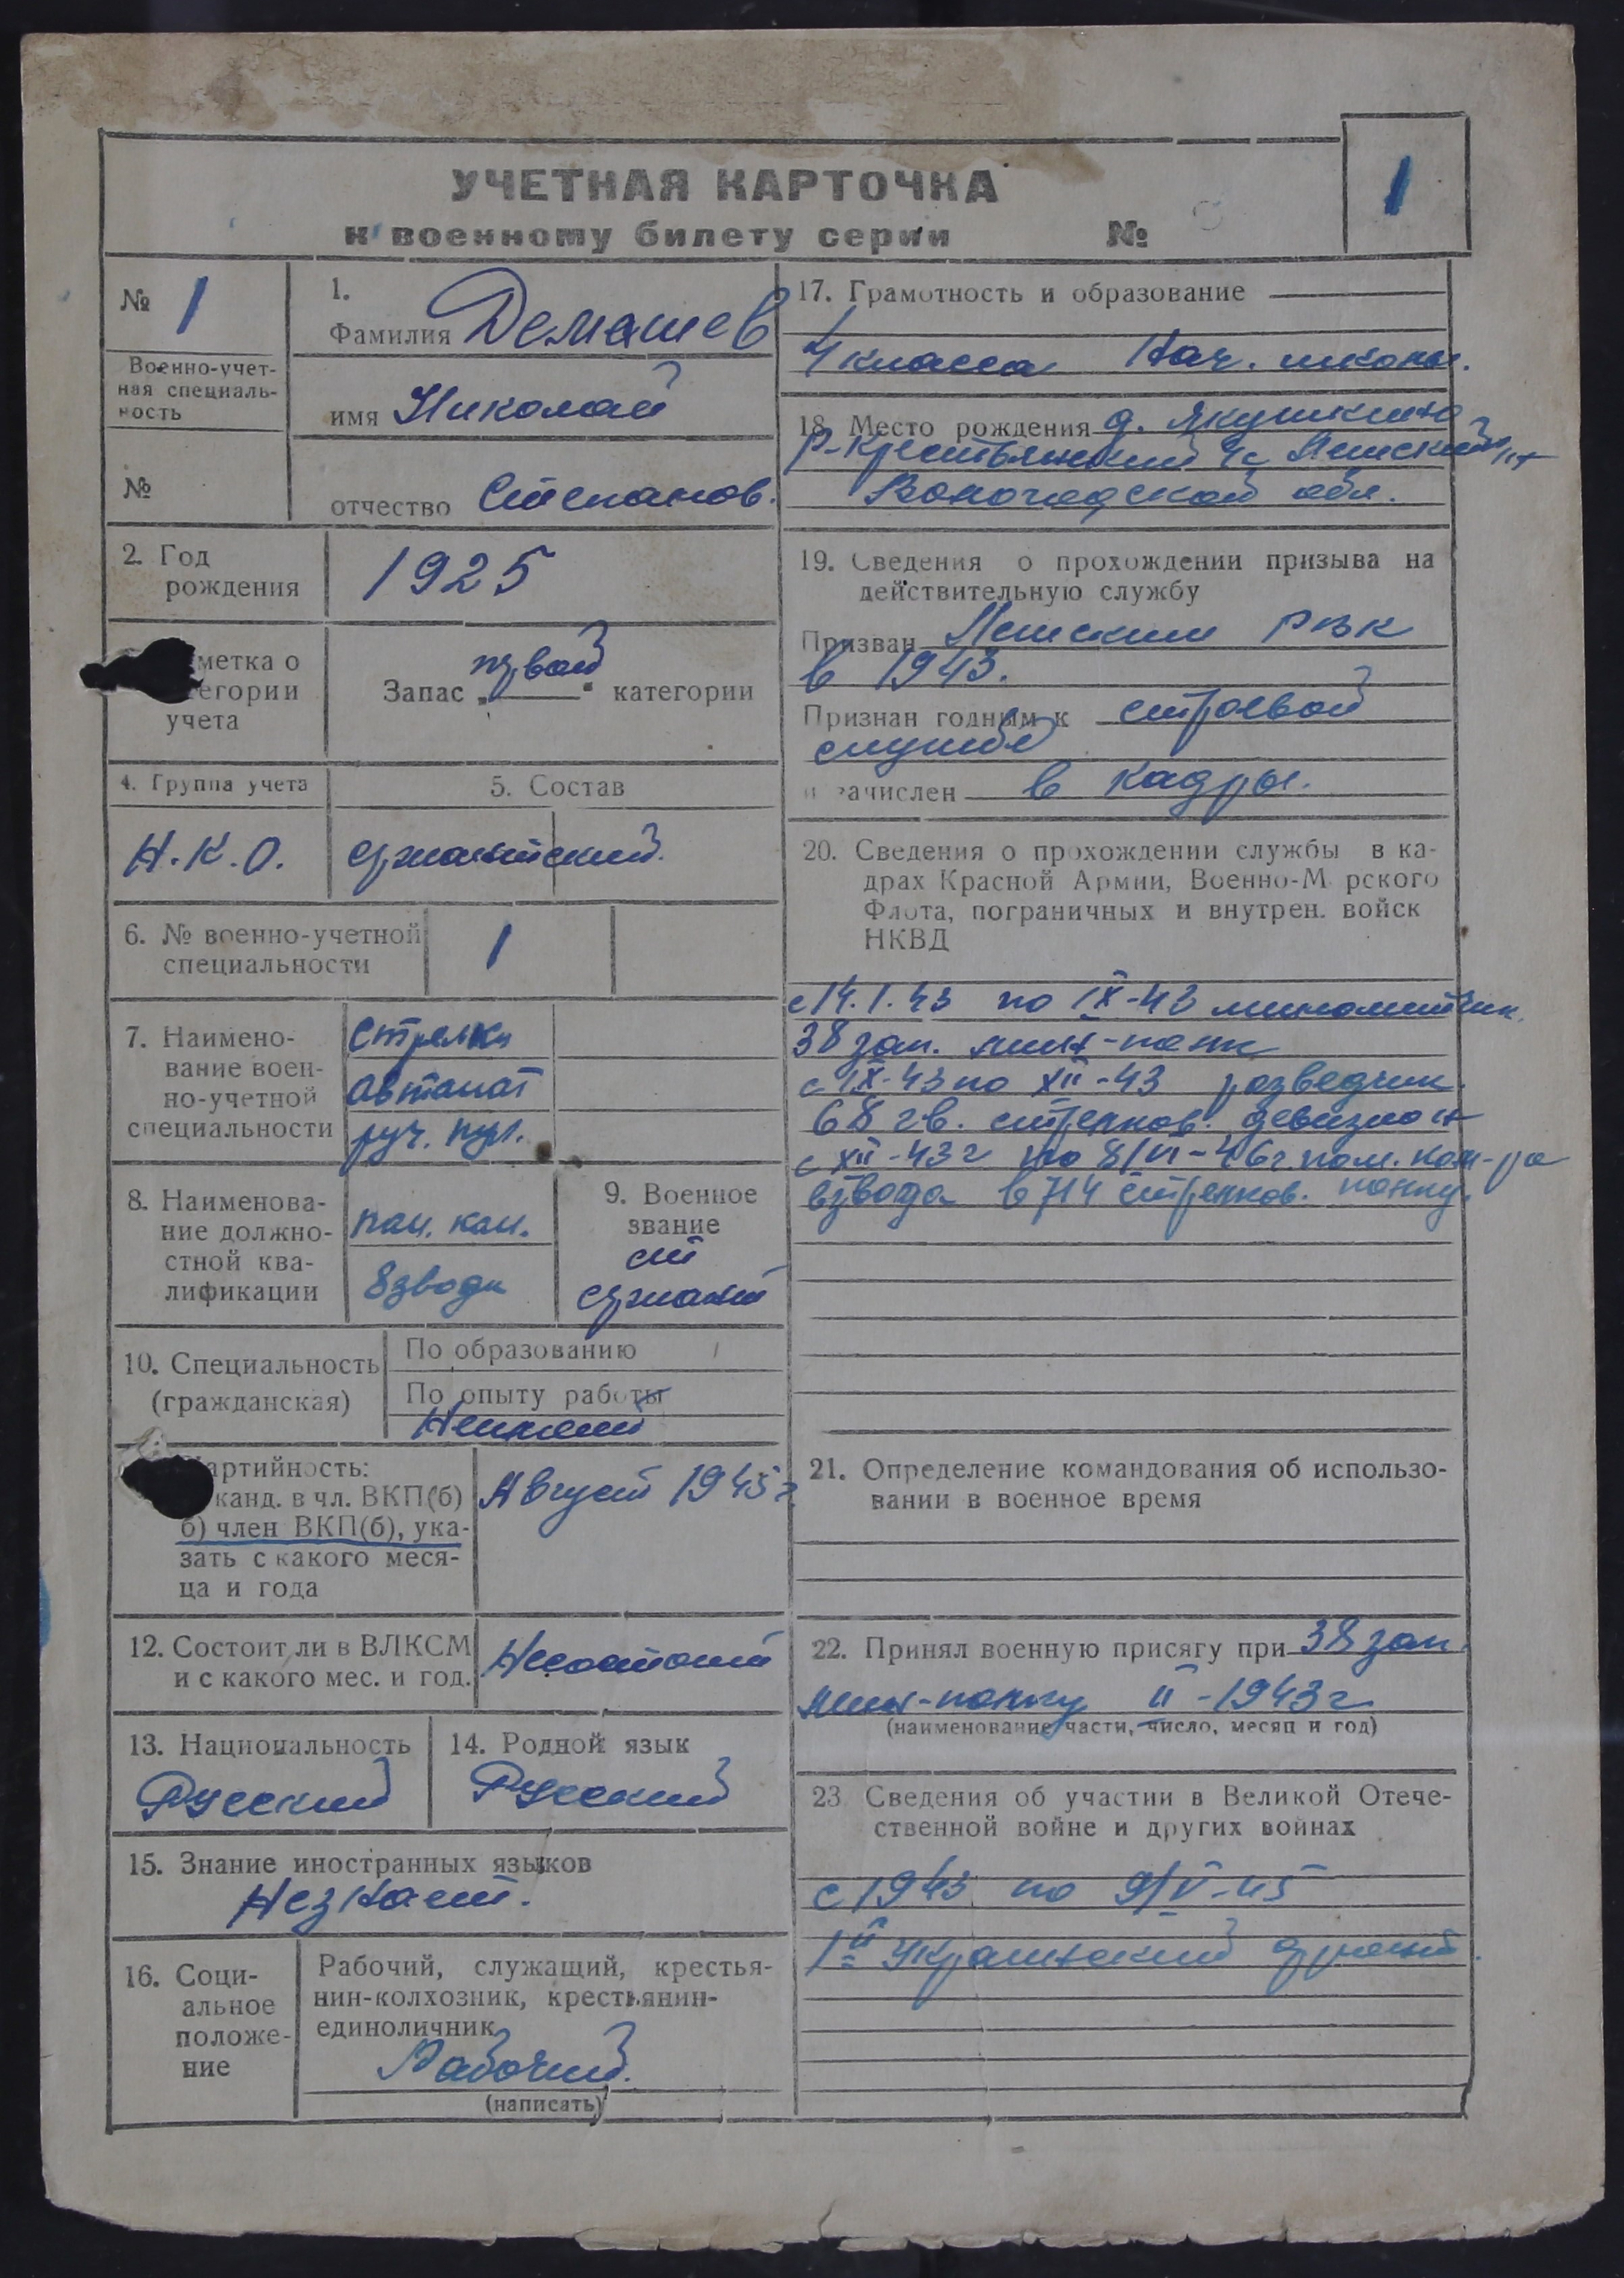 УЧЕТНАЯ КАРТОЧКА
к военному билету серии №
1
№ 1
Военно-учет-
ная специаль-
ность
№
1.
Фамилия Демашев
имя Николай
отчество Степанов.
2. Год
рождения
1925
метка о
егории
учета
Запас „первой“ категории
4. Группа учета
Н.К.О.
5. Состав
сржантский.
6. № военно-учетной
специальности
1
7. Наимено-
вание воен-
но-учетной
специальности
Стрелки
автомат
руч. пул.
8. Наименова-
ние должно-
стной ква-
лификации
пом. ком.
взвода
9. Военное
звание
ст
сржант
10. Специальность
(гражданская)
По образованию
По опыту работы
Неимеет
артийность:
канд. в чл. ВКП(б)
б) член ВКП(б), ука-
зать с какого меся-
ца и года
Август 1945 г.
12. Состоит ли в ВЛКСМ
и с какого мес. и год.
Несостоит
13. Национальность
Русский
14. Родной язык
Русский
15. Знание иностранных языков
Незнает.
16. Соци-
альное
положе-
ние
Рабочий, служащий, крестья-
нин-колхозник, крестьянин-
единоличник
Рабочий.
(написать)
17. Грамотность и образование
4 класса Нач. школы.
18. Место рождения д. Якушкино
Р-Крестьянский с/с
Вологодской обл.
19. Сведения о прохождении призыва на
действительную службу
Призван РВК
в 1943.
Признан годным к строевой
службе
и зачислен в кадры.
20. Сведения о прохождении службы в ка-
драх Красной Армии, Военно-М рского
Флота, пограничных и внутрен. войск
НКВД
с 14.1.43 по IX-43 минометчик.
38 зап. мин-полк
с IX-43 по XII-43 розведчик.
68 гв. стрелков. девизион
с XII-43 г по 8/VI-46 г. пом. ком-ра
взвода в 714 стрелков. полку.
21. Определение командования об использо-
вании в военное время
22. Принял военную присягу при 38 зап.
мин-полку II-1943 г
(наименование части, число, месяц и год)
23. Сведения об участии в Великой Отече-
ственной войне и других войнах
с 1943 по 9/V-45
1й Украинский фронт.